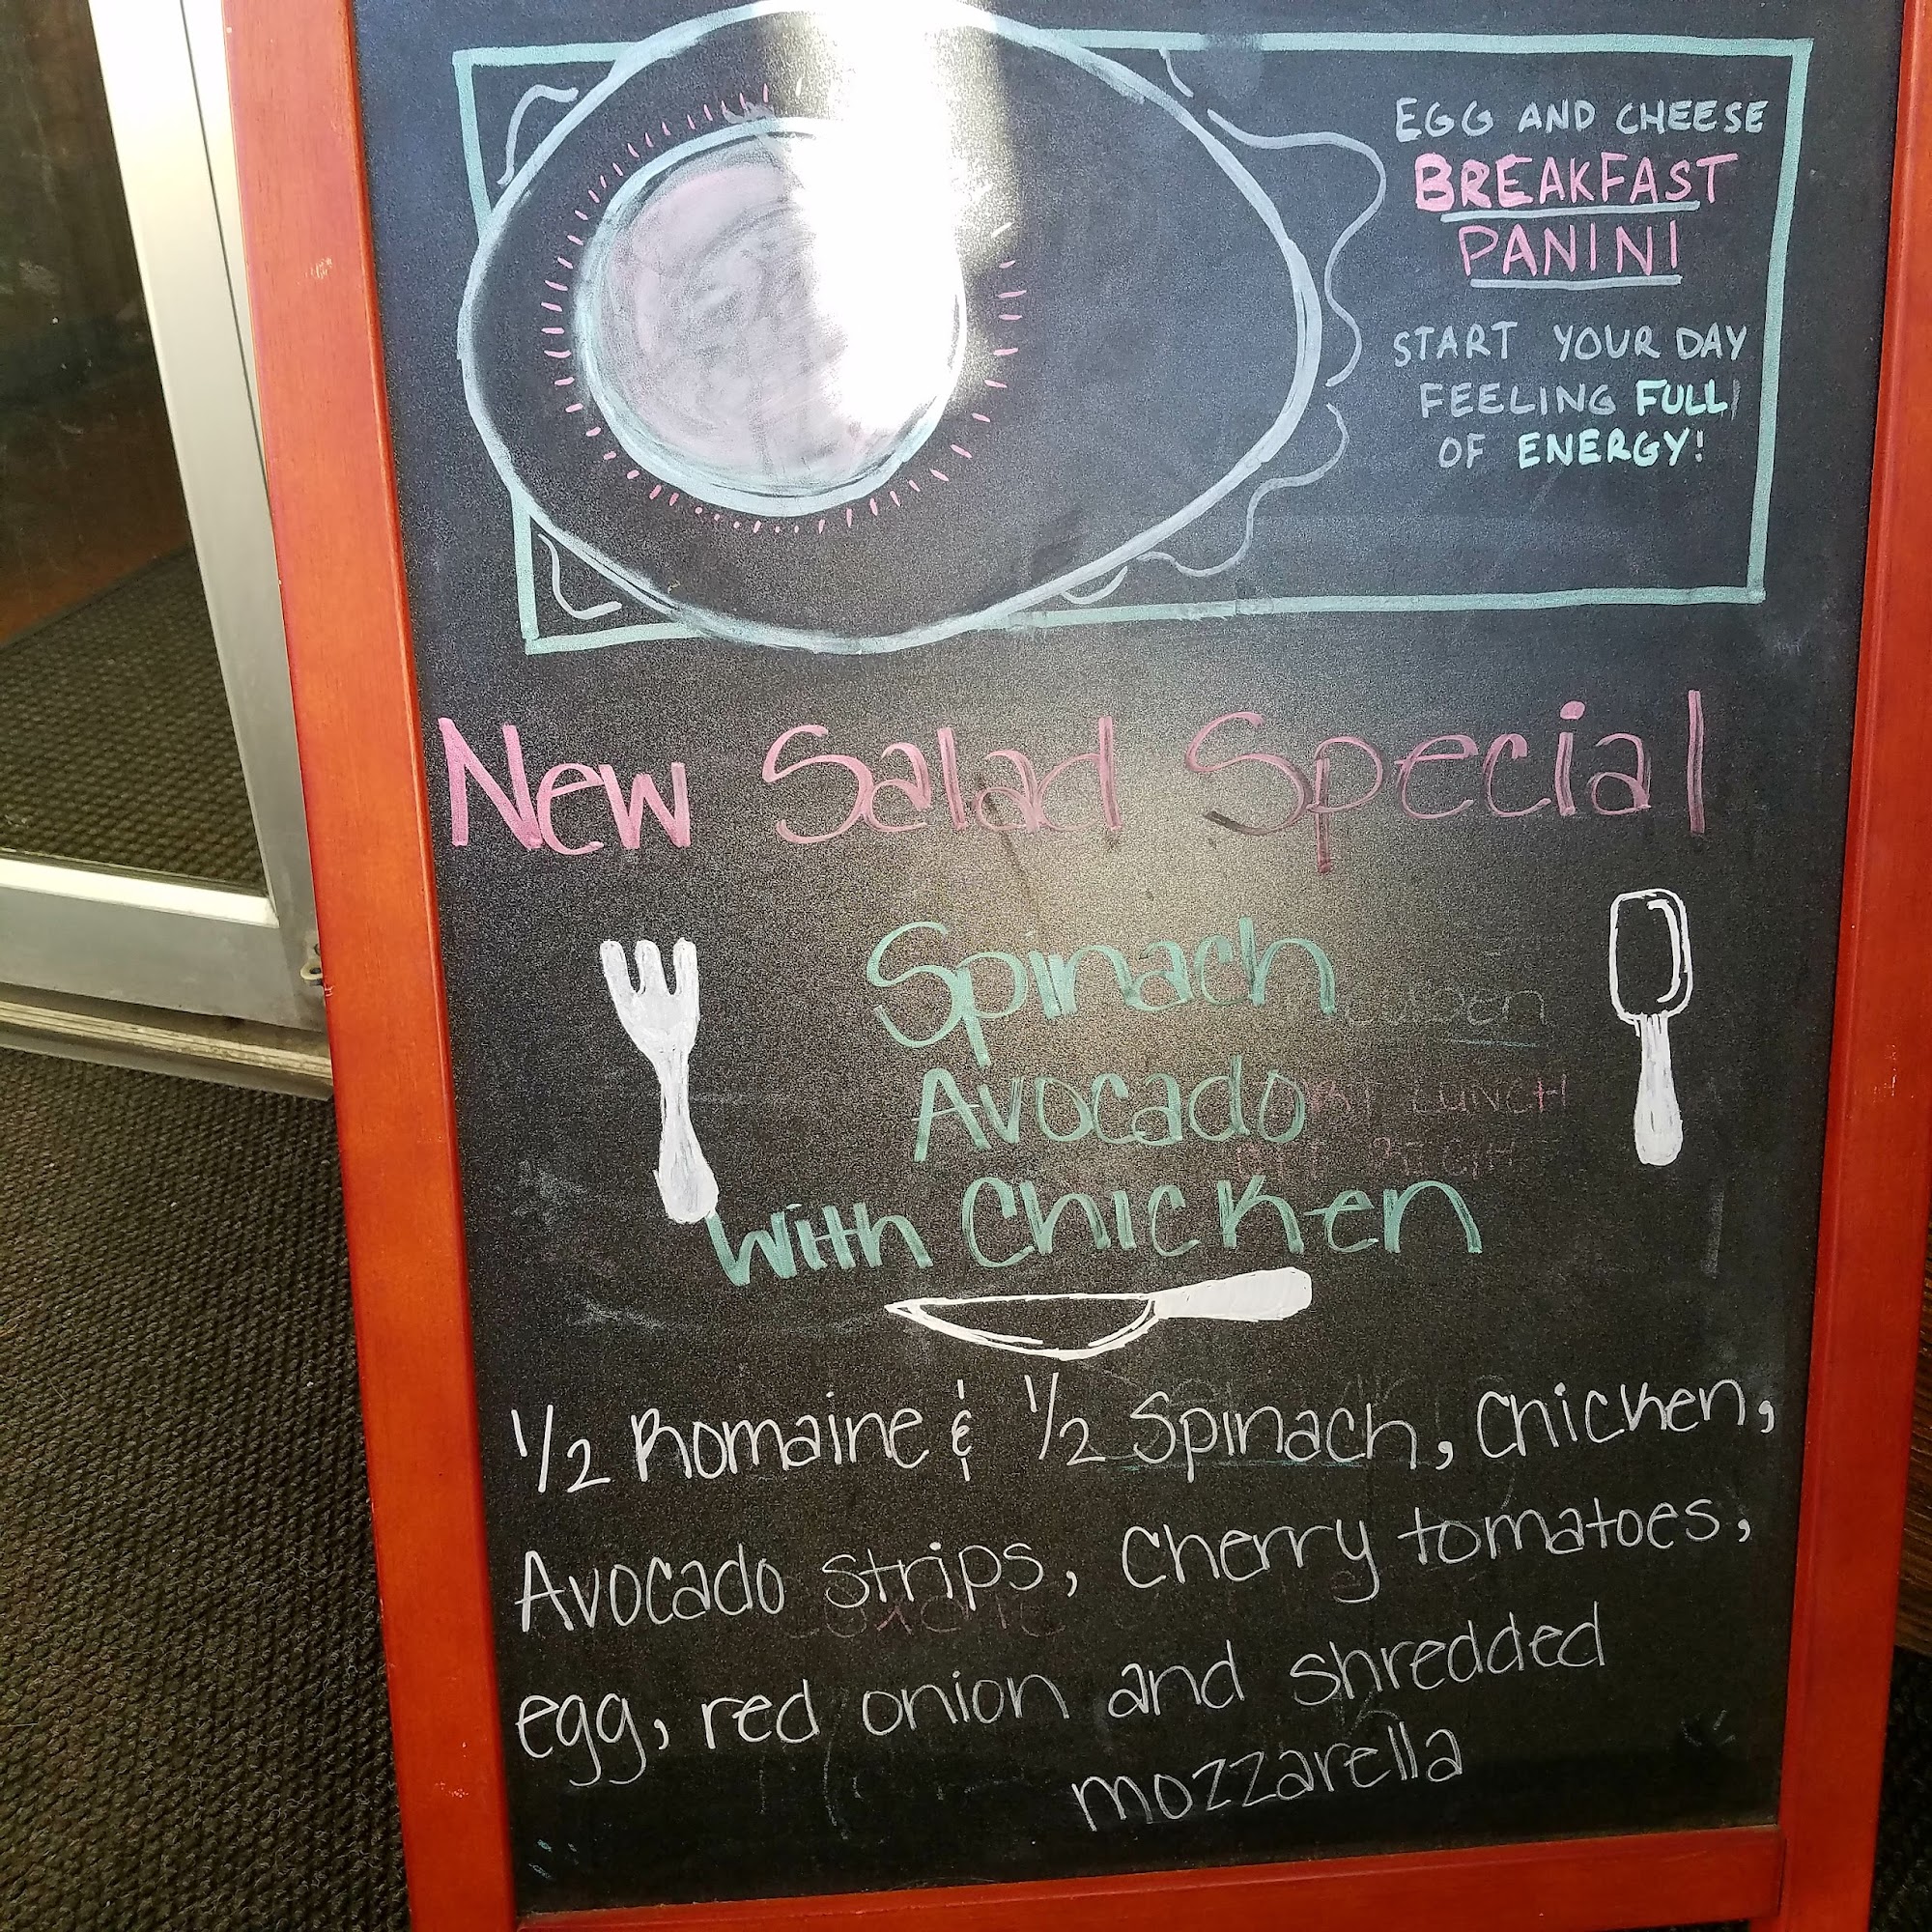 EGG AND CHEESE
BREAKFAST
PANINI
START YOUR DAY
FEELING FULL
OF ENERGY!
New Salad Special
Spinach
Avocado
LUNCH
with Chicken
1/2 Romaine & 1/2 Spinach, Chicken,
Avocado strips, Cherry tomatoes,
egg, red onion and shredded
mozzarella